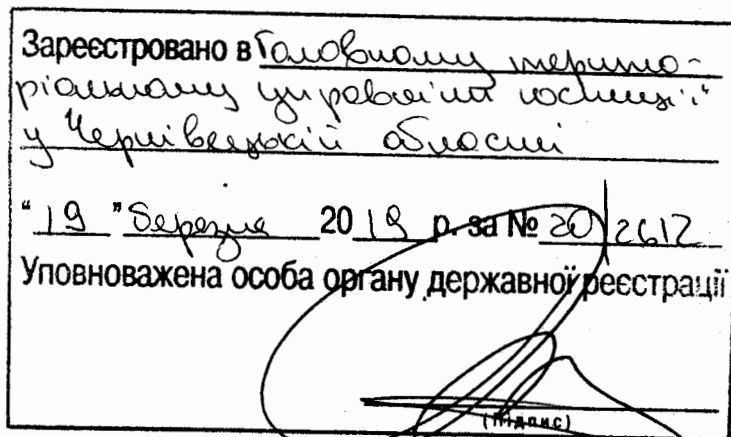 Зареєстровано в Головному терито-
ріальному управлінні юстиції
у Чернівецькій області
"19" березня 2019 р. за № 20/2612
Уповноважена особа органу державної реєстрації
(підпис)